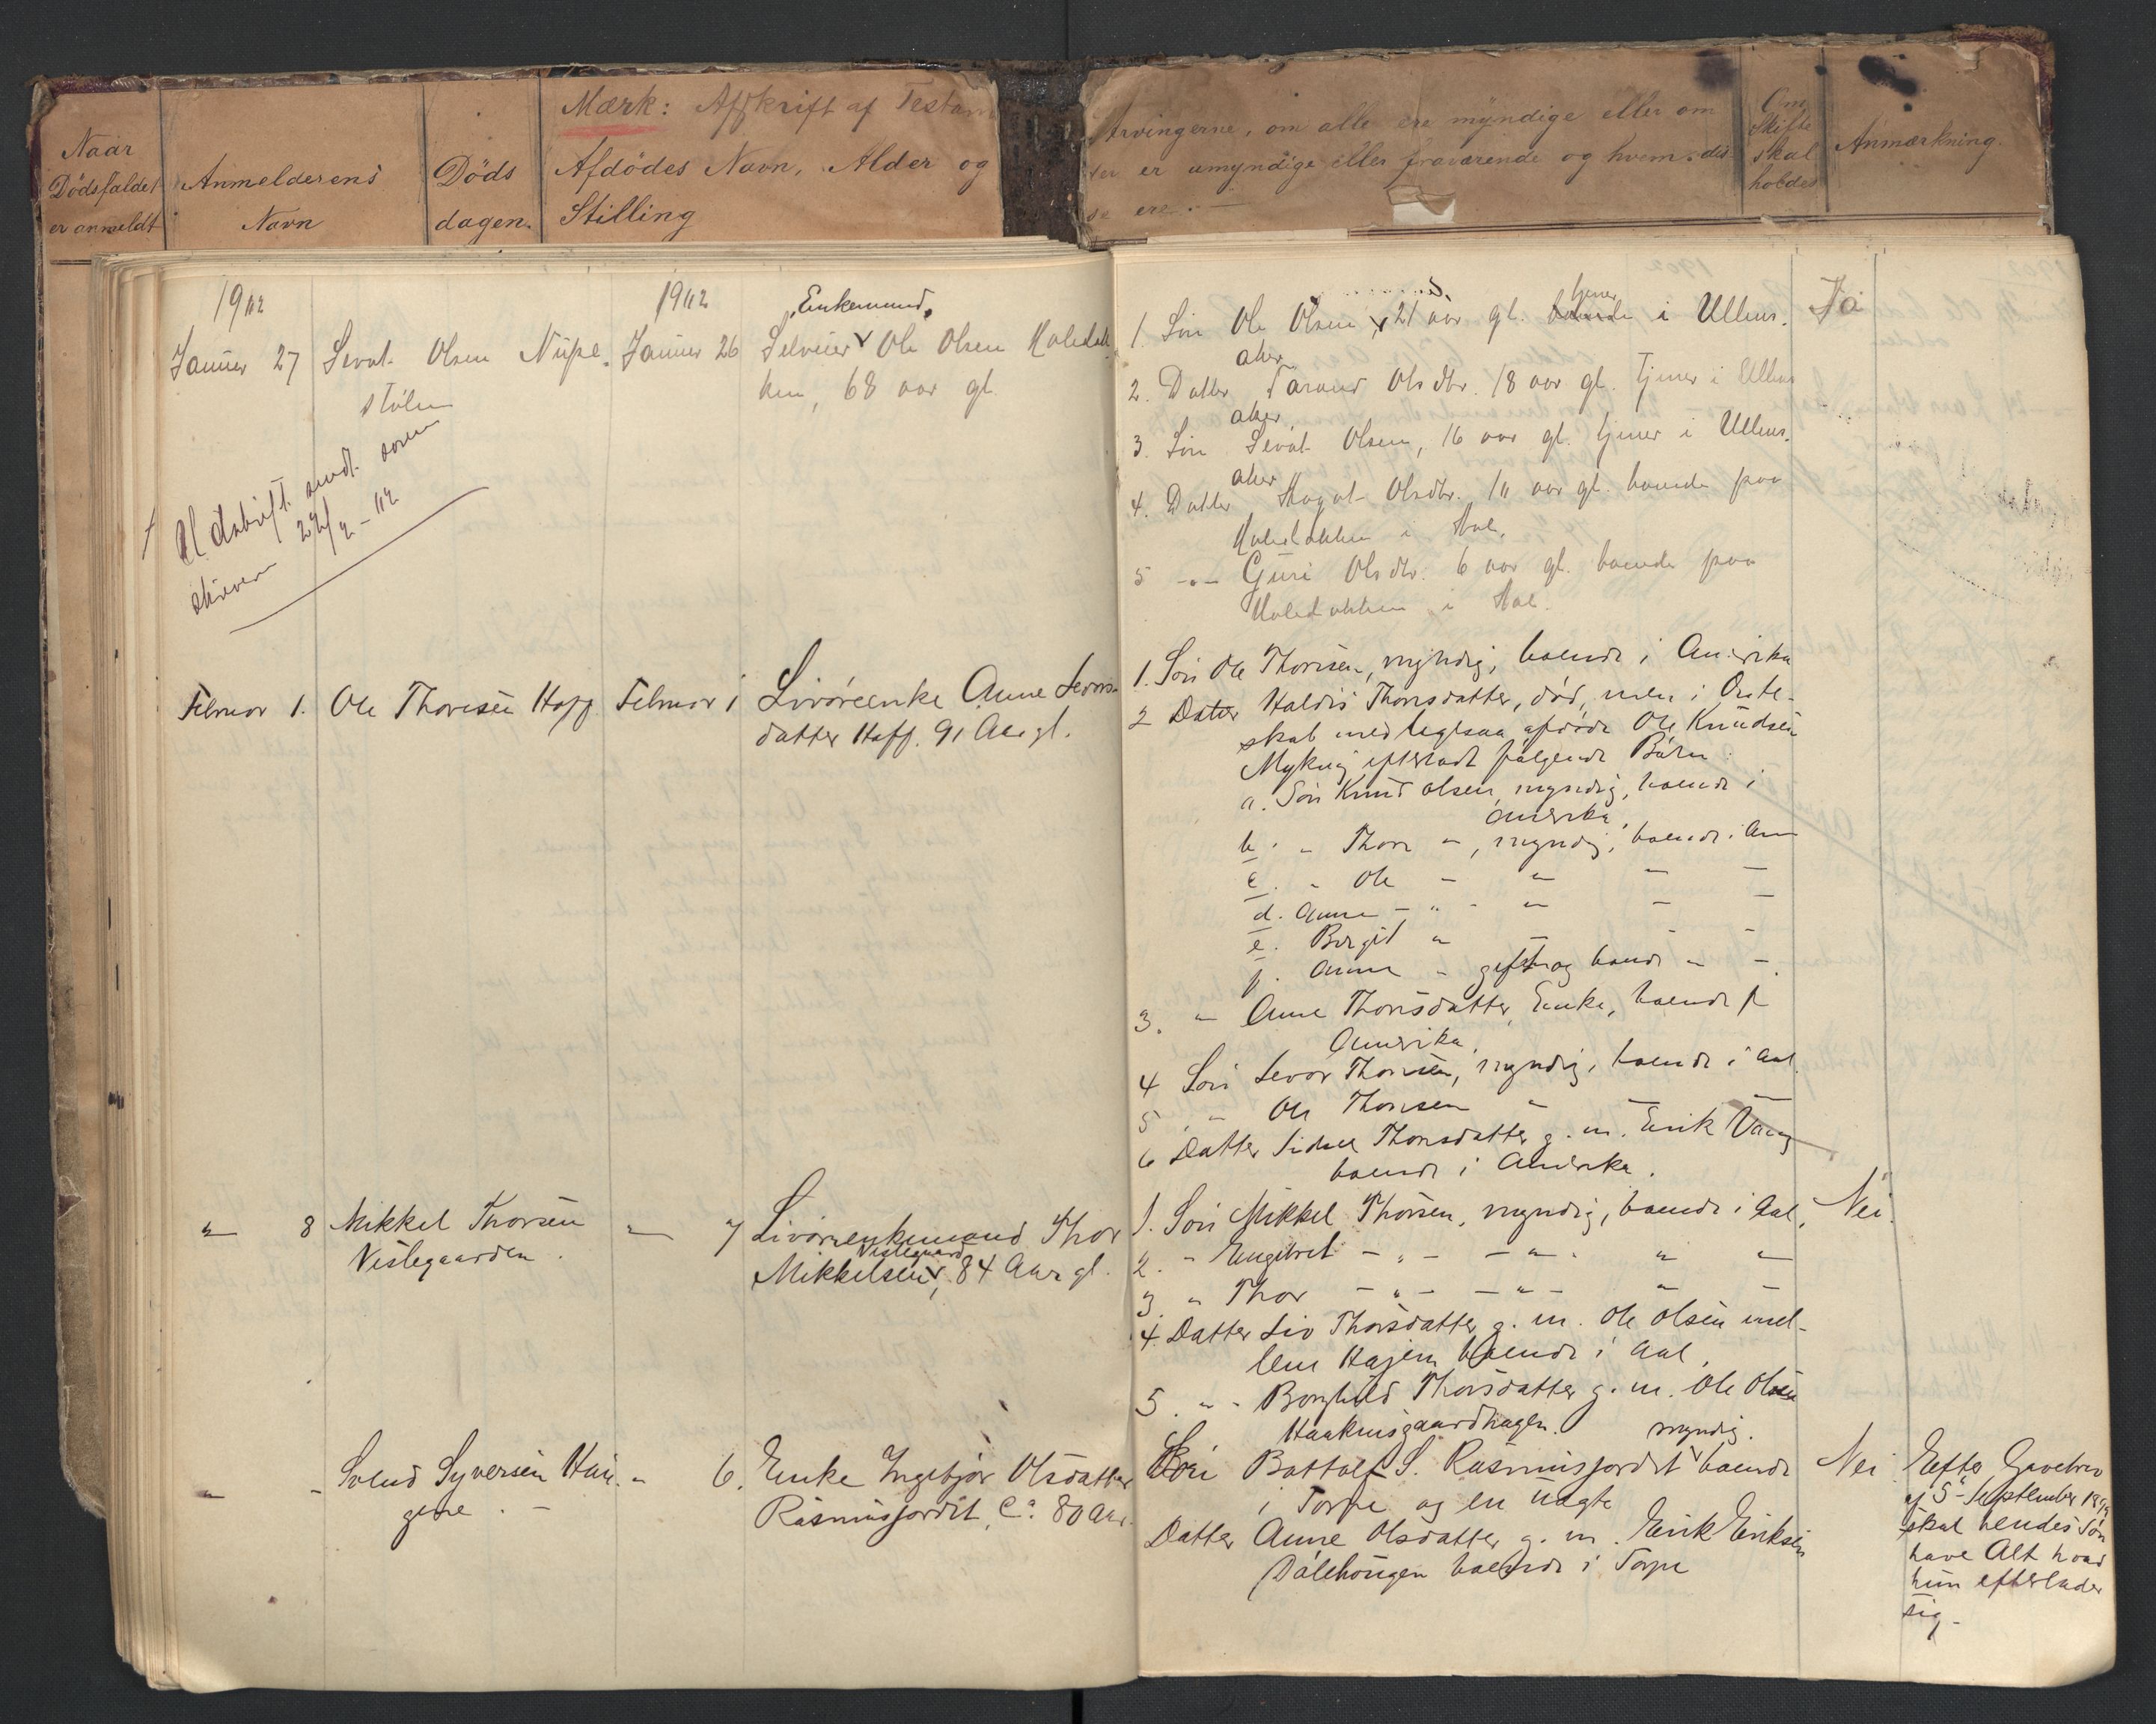 Mærk: Afskrift af Testam
Naar
Dödsfaldet
er anmeldt
Anmelderens
Navn
Döds
dagen.
Afdödes Navn, Alder og
Stilling
Arvingerne, om alle ere myndige eller om
er umyndige eller fraværende og hvem dis-
se ere. —
Om
Skifte
skal
holdes
Anmærkning.
1902
1902
Enkemand,
Januer 27
Sevat Olsen Nupe-
stølen
Januer 26
Selveier Ole Olsen
ken, 68 aar gl.
Udskrift sendt soren-
skriveren 24/2 - 02
1. Søn Ole Olsen, 21 aar gl. tjener i Ullens-
aker
2. Datter Olsdtr. 18 aar gl. tjener i Ullens
aker
3. Søn Sevat Olsen, 16 aar gl. tjener i Ullens-
aker
4. Datter Olsdtr. 10 aar gl. boende paa
i Aal.
5 -"- Guri Olsdtr. 6 aar gl. boende paa
i Aal.
Ja
Februar 1.
Ole Thoresen Hoff
Februar 1
Livøreenke Anne Levors-
datter Hoff. 91 Aar gl.
1. Søn Ole Thorsen, myndig, boende i Amerika
2 Datter Haldis Thorsdatter, død, men i Ægte-
skab med ligesaa afdøde Ole Knudsen
Myking efterladt følgende Børn:
a. Søn Knud Olsen, myndig, boende i
Amerika.
b. " Thore ", myndig, boende i Am
c. " Ole - " - -
d. Anne - " - " - -
e. Birgit " - - -
f. Anne " gift og boende " -.
3. " Anne Thorsdatter, Enke, boende i
Amerika.
4 Søn Levor Thorsen, myndig, boende i Aal.
5. " Ole Thorsen " - -
6 Datter Sidsel Thorsdatter g. m. Erik Vang
boende i Amerika.
" 8
Mikkel Thorsen
Veslegaarden.
" 7
Livøreenkemand Thor
Veslegaard
Mikkelsen, 84 Aar gl.
1. Søn Mikkel Thorsen, myndig, boende i Aal.
2. " Engebret - " - - " - " "
3. " Thor - " - - " - " -
4. Datter Liv Thorsdatter g. m. Ole Olsen mel-
lem Hagen boende i Aal.
5. " - Borghild Thorsdatter g. m. Ole Olsen
Haakensgaardhagen.
Nei.
" -
Svend Syversen Hau-
gene. -
6.
Enke Ingebjør Olsdatter
Rasmusjordet, Ca 80 Aar.
myndig.
Søn Bottolf S. Rasmusjordet boende
i Torpe og en uægte
Datter Anne Olsdatter g. m. Erik Eriksen
Dálehougen boende i Torpe
Nei
Efter Gavebrev
af 5 September
skal hendes Søn
have Alt hvad
hun efterlader
sig -